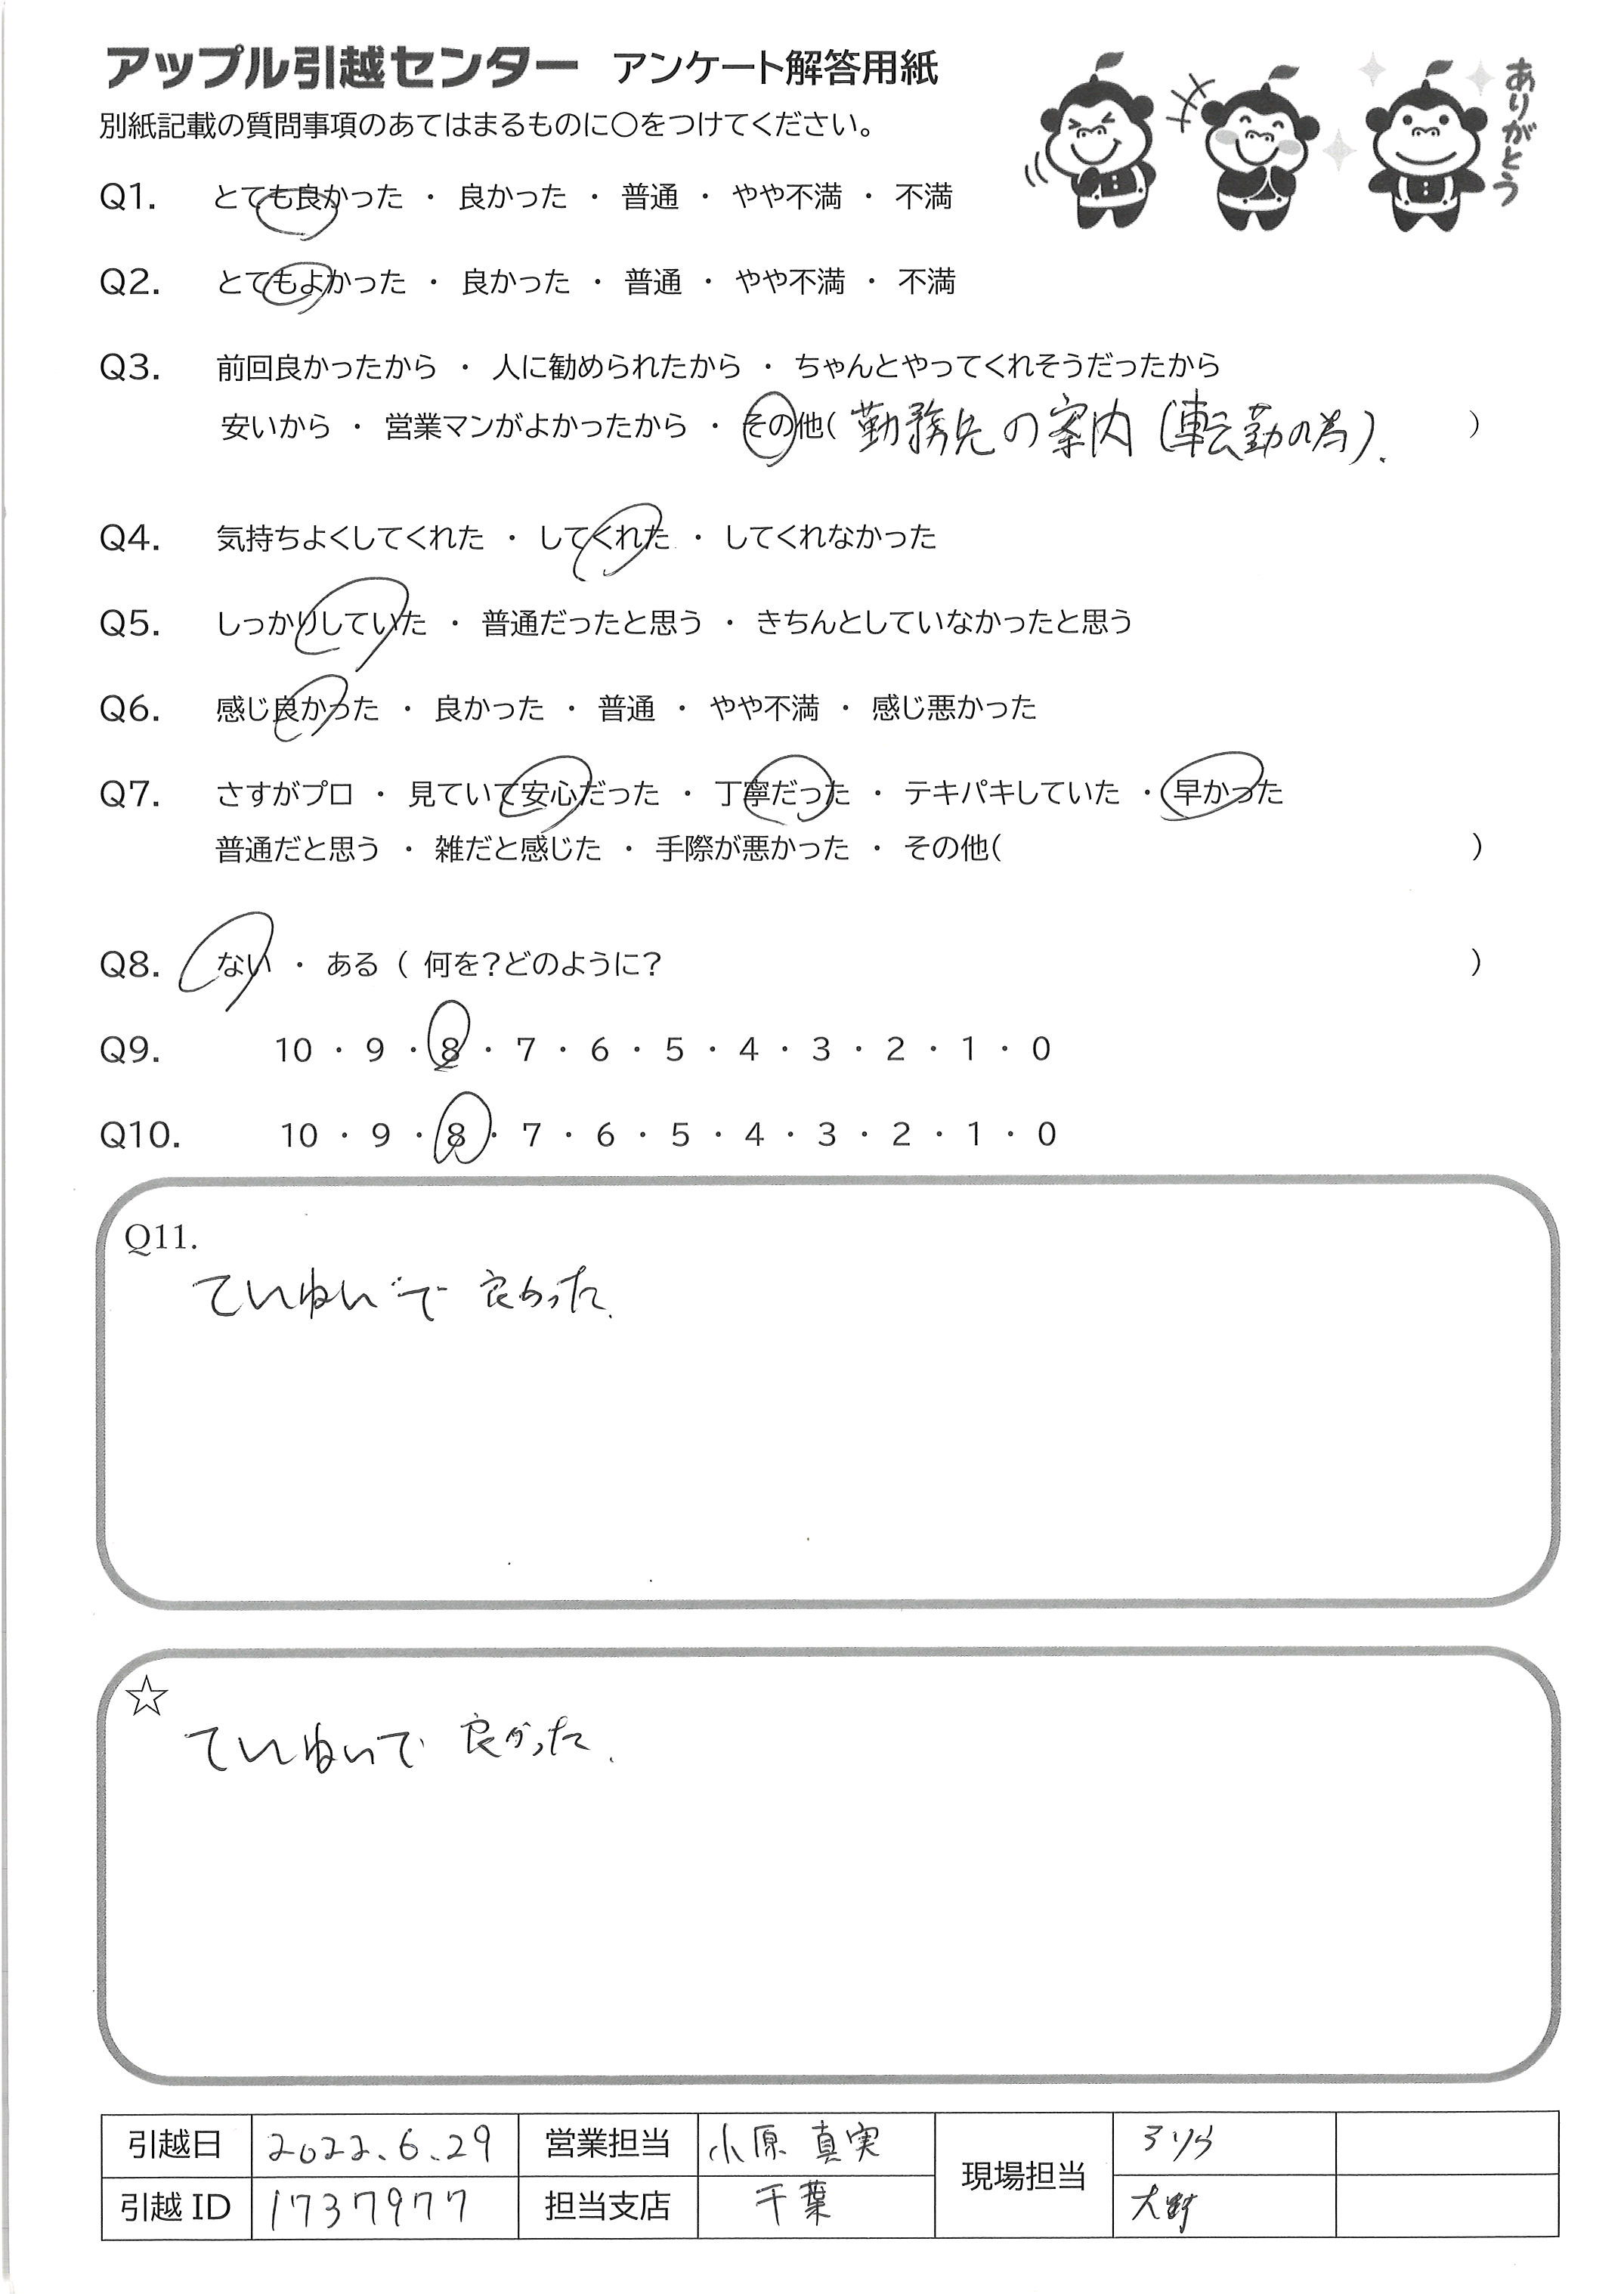 アップル引越センター アンケート解答用紙
ありがとう
別紙記載の質問事項のあてはまるものに○をつけてください。
Q1. とても良かった ・ 良かった ・ 普通 ・ やや不満 ・ 不満
Q2. とてもよかった ・ 良かった ・ 普通 ・ やや不満 ・ 不満
Q3. 前回良かったから ・ 人に勧められたから ・ ちゃんとやってくれそうだったから
安いから ・ 営業マンがよかったから ・ その他( 勤務先の案内（転勤の為）. )
Q4. 気持ちよくしてくれた ・ してくれた ・ してくれなかった
Q5. しっかりしていた ・ 普通だったと思う ・ きちんとしていなかったと思う
Q6. 感じ良かった ・ 良かった ・ 普通 ・ やや不満 ・ 感じ悪かった
Q7. さすがプロ ・ 見ていて安心だった ・ 丁寧だった ・ テキパキしていた ・ 早かった
普通だと思う ・ 雑だと感じた ・ 手際が悪かった ・ その他( )
Q8. ない ・ ある ( 何を?どのように? )
Q9. 10 ・ 9 ・ 8 ・ 7 ・ 6 ・ 5 ・ 4 ・ 3 ・ 2 ・ 1 ・ 0
Q10. 10 ・ 9 ・ 8 ・ 7 ・ 6 ・ 5 ・ 4 ・ 3 ・ 2 ・ 1 ・ 0
Q11.
ていねいで 良かった.
☆
ていねいで 良かった.
引越日 2022.6.29 営業担当 小原 真実 現場担当
引越ID 1737977 担当支店 千葉 大野